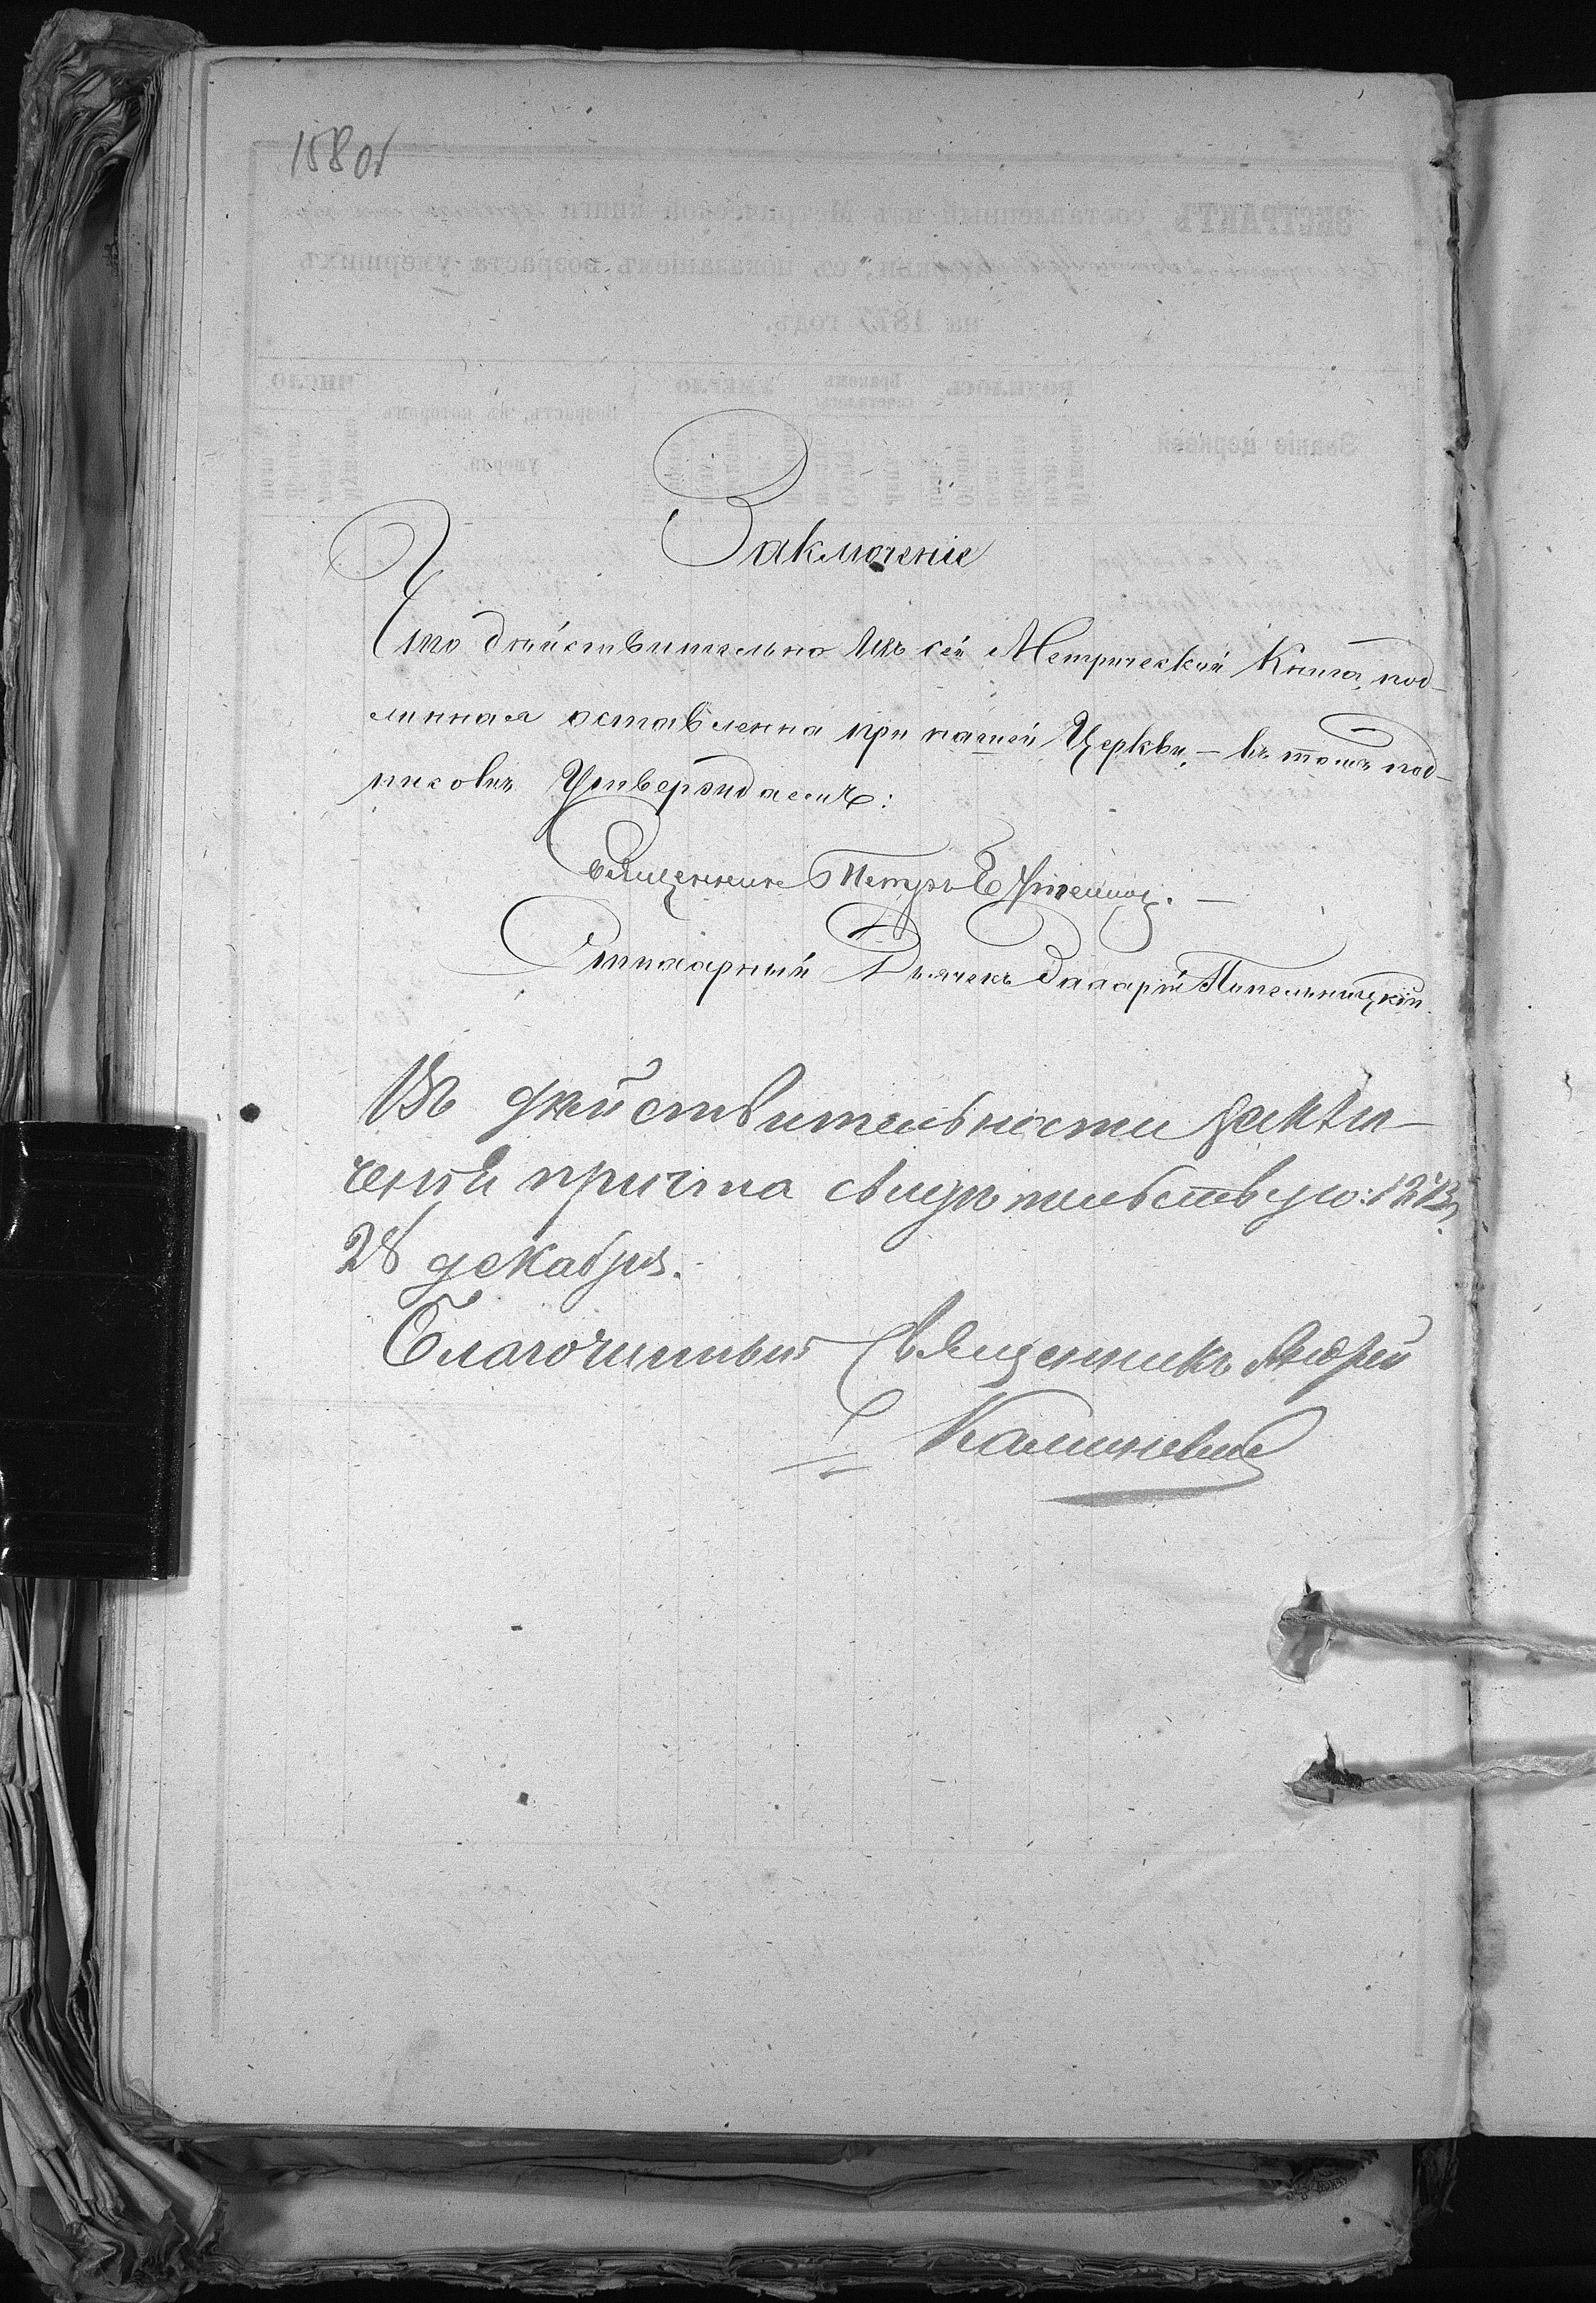 158 об
Заключеніе
Что дѣйствительно изъ сей Метрической Книги, под-
линная оставленна при нашей Церкви, – въ томъ под-
писомъ Утверждаемъ:
Священникъ Петръ
Стихарный Дьячекъ Захарій Пепельницкій
Въ дѣйствительности заклю-
ченій причта свидѣтельствую:
28 декабря.
Благочинный Священникъ Андрей
Калиневич